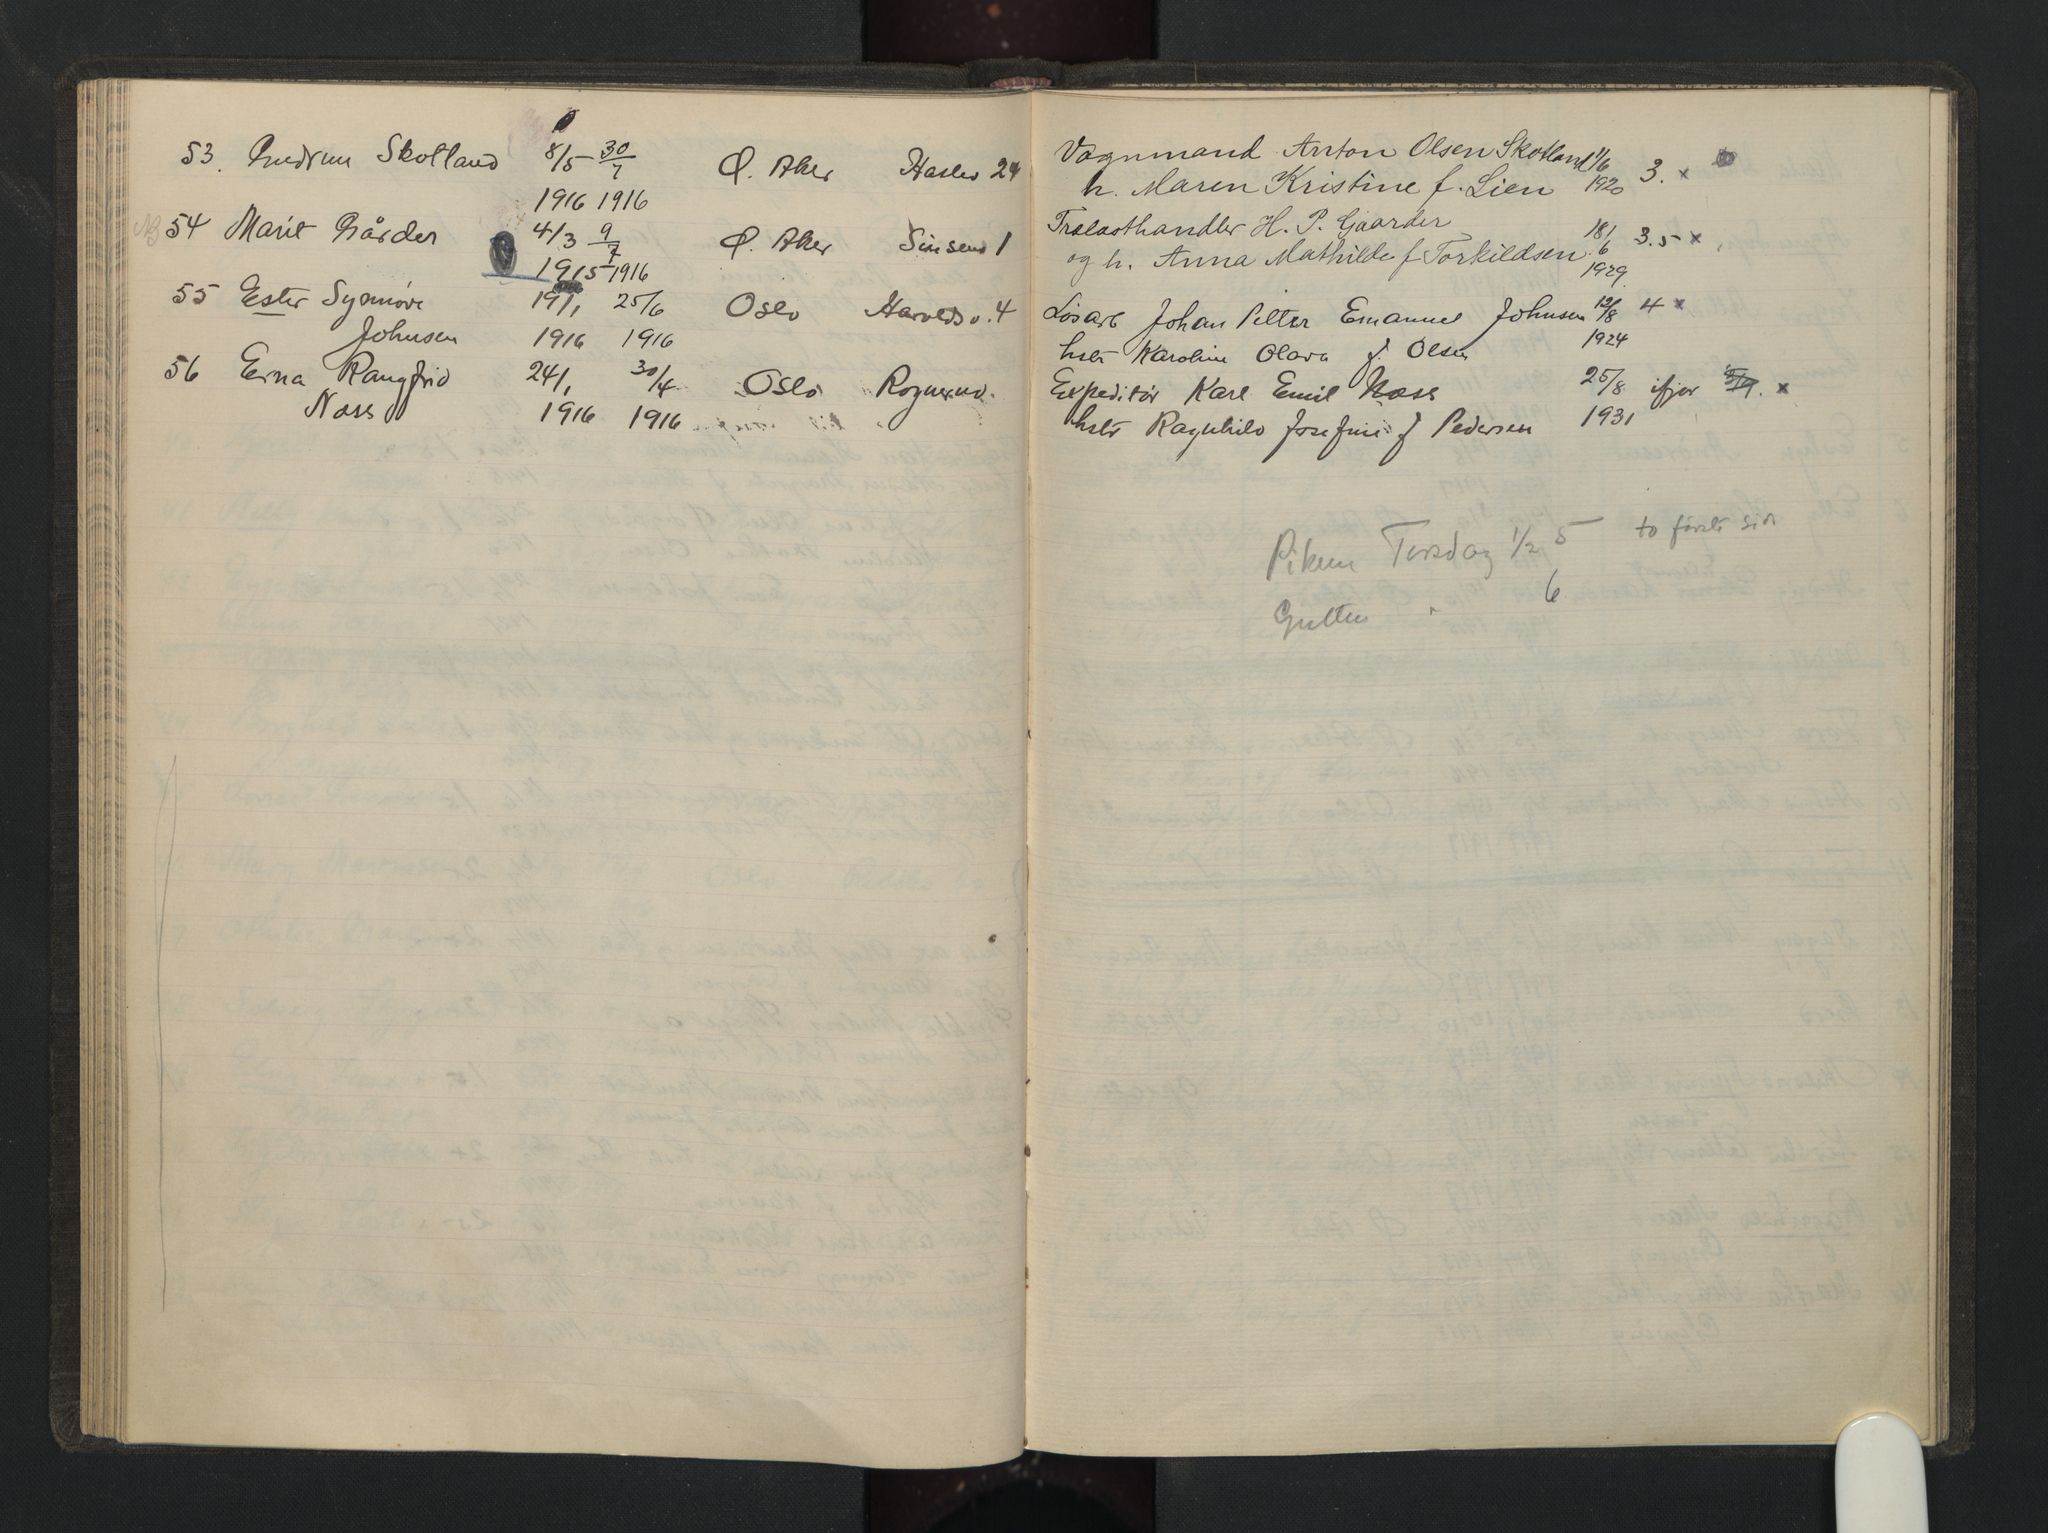 53. Gudrun Skotland 8/5 30/7 Ø. Aker Haslev 24
1916 1916
54 Marit Gårder 4/3 9/7 Ø. Aker Sinsenv 1
1915 1916
55 Ester Synnøve 19/1, 25/6 Oslo Haroldsv. 4
Johnsen 1916 1916
56 Erna Rangfrid 24/1, 30/4 Oslo
Næss 1916 1916
Vognmand Anton Olsen Skotland 1/6 3. x
h. Maren Kristine f. Lien 1920
Trælasthandler H. P. Gaarder 18/6 3.5 x
og h. Anna Mathilde f Torkildsen 1929
Løsarb Johan Petter Emanuel Johnsen 12/8 4 x
hstr Karoline Olava f. Olsen 1924
Expeditør Karl Emil Næss 25/8 ifjor x
hstr Ragnhild Josefine f Pedersen 1931
Piken Torsdag 1/2 5 to første sid
Gutten " 6